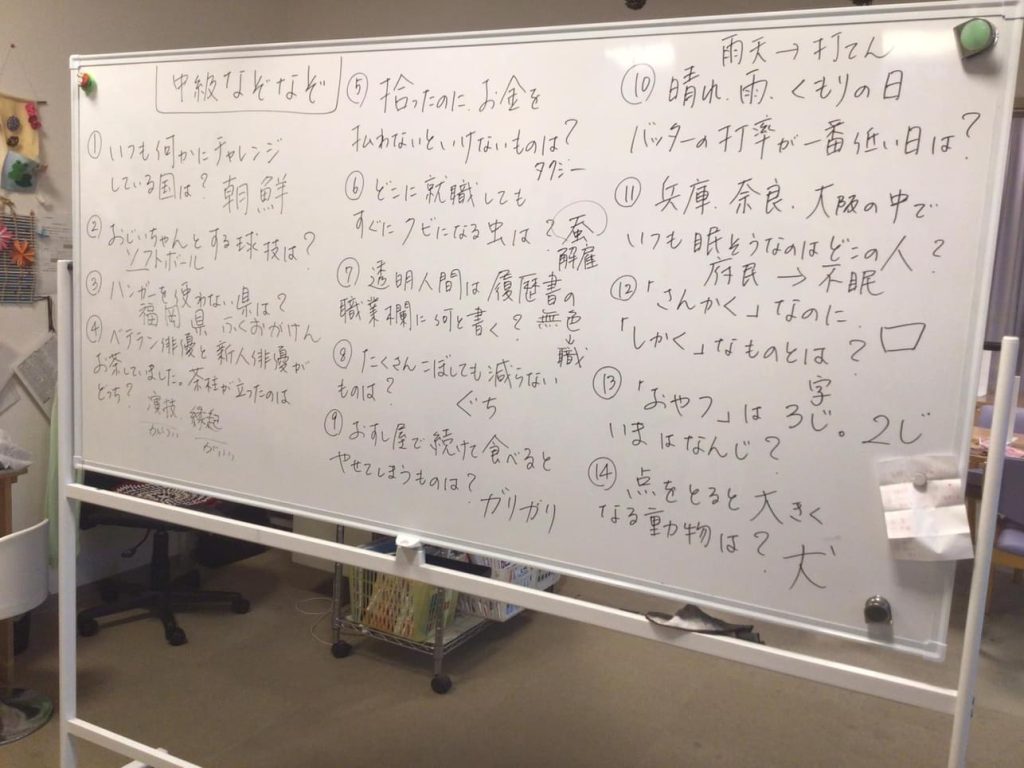 中級なぞなぞ
① いつも何かにチャレンジ
している国は? 朝鮮
② おじいちゃんとする球技は?
ソフトボール
③ ハンガーを使わない県は?
福岡県 ふくおかけん
④ ベテラン俳優と新人俳優が
お茶していました。茶柱が立ったのは
どっち?
演技 縁起
がいい がいい
⑤ 拾ったのに、お金を
払わないといけないものは?
タクシー
⑥ どこに就職しても
すぐにクビになる虫は? 蚕
解雇
⑦ 透明人間は履歴書の
職業欄に何と書く? 無色
職
⑧ たくさんこぼしても減らない
ものは?
ぐち
⑨ おすし屋で続けて食べると
やせてしまうものは?
ガリガリ
雨天→打てん
⑩ 晴れ、雨、くもりの日
バッターの打率が一番近い日は?
⑪ 兵庫、奈良、大阪の中で
いつも眠そうなのはどこの人?
府民→不眠
⑫ 「さんかく」なのに、
「しかく」なものとは?
⑬ 「おやつ」は3じ。2じ
字
いまはなんじ?
⑭ 点をとると大きく
なる動物は?
犬